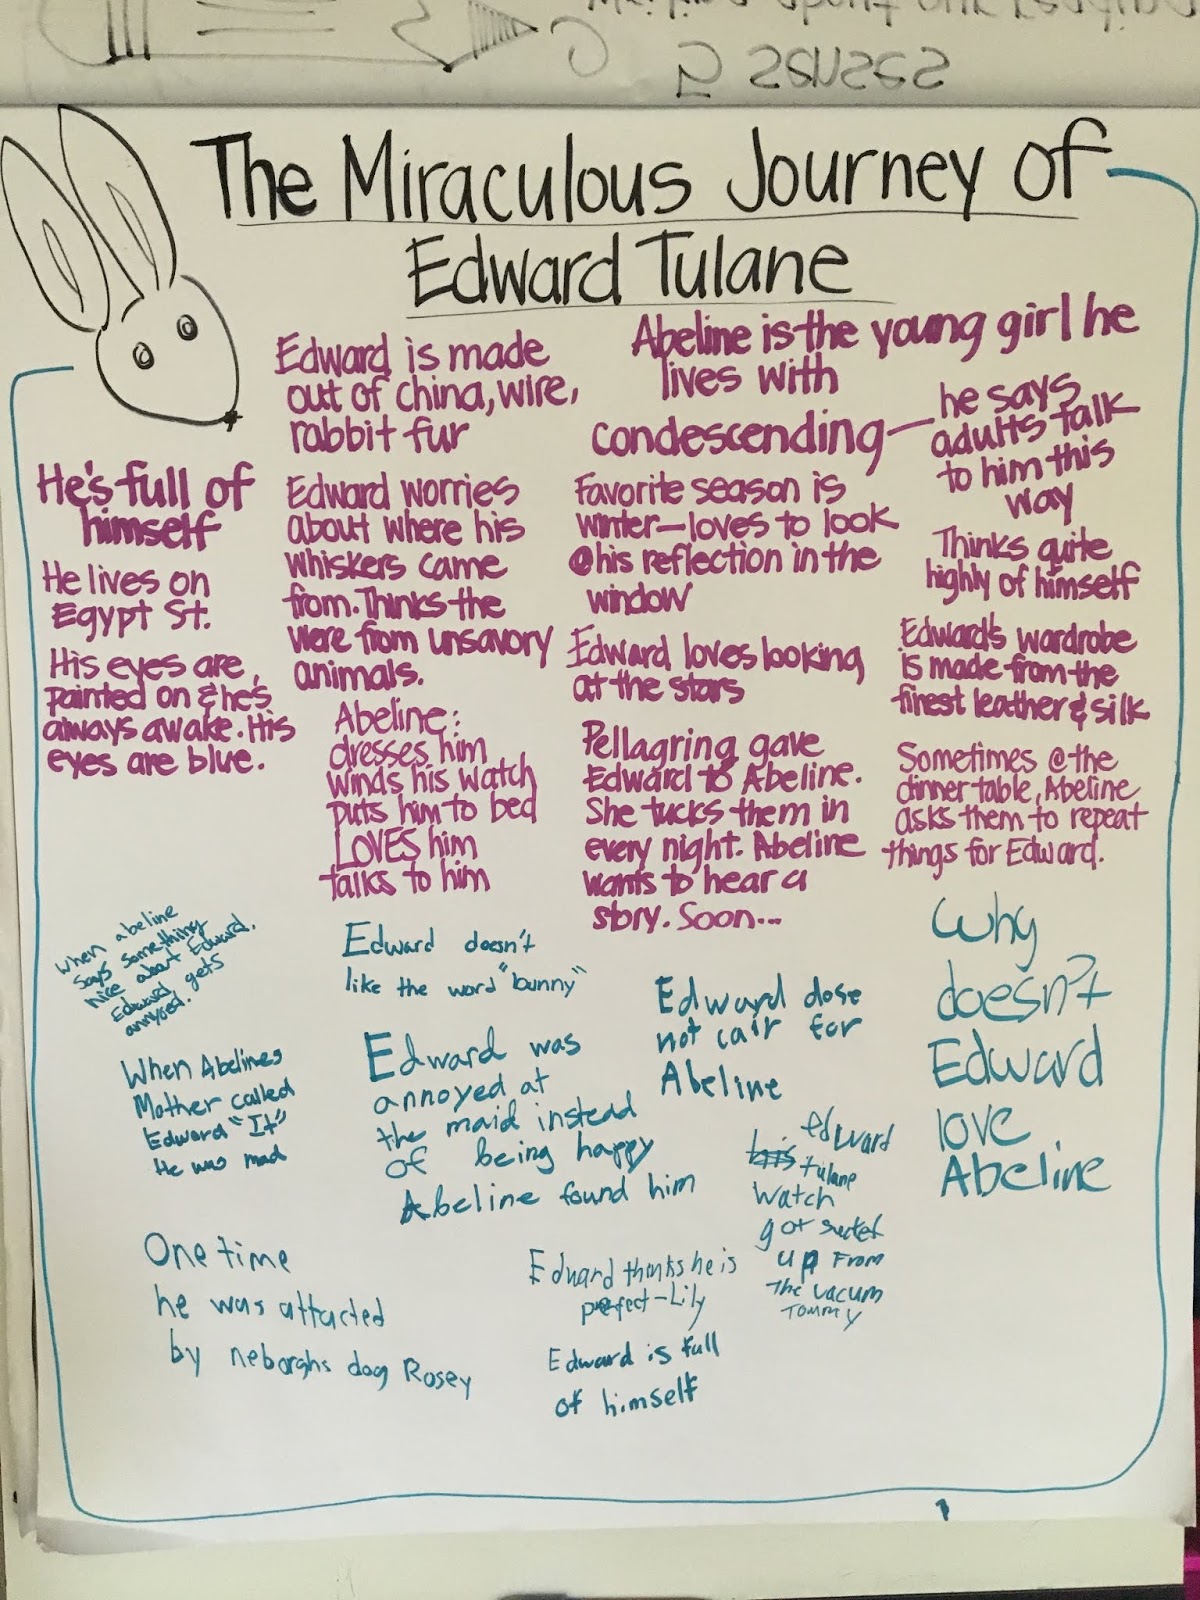 5 senses
The Miraculous Journey of
Edward Tulane
Edward is made
out of china, wire,
rabbit fur
Abeline is the young girl he
lives with
condescending — he says
adults talk
to him this
way
He's full of
himself
Edward worries
about where his
whiskers came
from. Thinks the
were from unsavory
animals.
Favorite season is
winter—loves to look
@his reflection in the
window
Thinks quite
highly of himself
He lives on
Egypt St.
His eyes are
painted on & he's
always awake. His
eyes are blue.
Edward loves looking
at the stars
Edward's wardrobe
is made from the
finest leather & silk
Abeline:
dresses him
winds his watch
puts him to bed
LOVES him
talks to him
Pellagring gave
Edward to Abeline.
She tucks them in
every night. Abeline
wants to hear a
story. Soon...
Sometimes @the
dinner table, Abeline
asks them to repeat
things for Edward.
When abeline
says something
nice about Edward,
Edward gets
annyoed.
Edward doesn't
like the word "bunny"
Edward dose
not cair for
Abeline
Why
doesn't
Edward
love
Abeline
?
When Abelines
Mother called
Edward "It"
He was mad
Edward was
annoyed at
the maid instead
of being happy
Abeline found him
edward
tulane
watch
got
up From
The vacum
Tommy
One time
he was attacted
by neborghs dog Rosey
Edward thinks he is
perfect-Lily
Edward is full
of himself